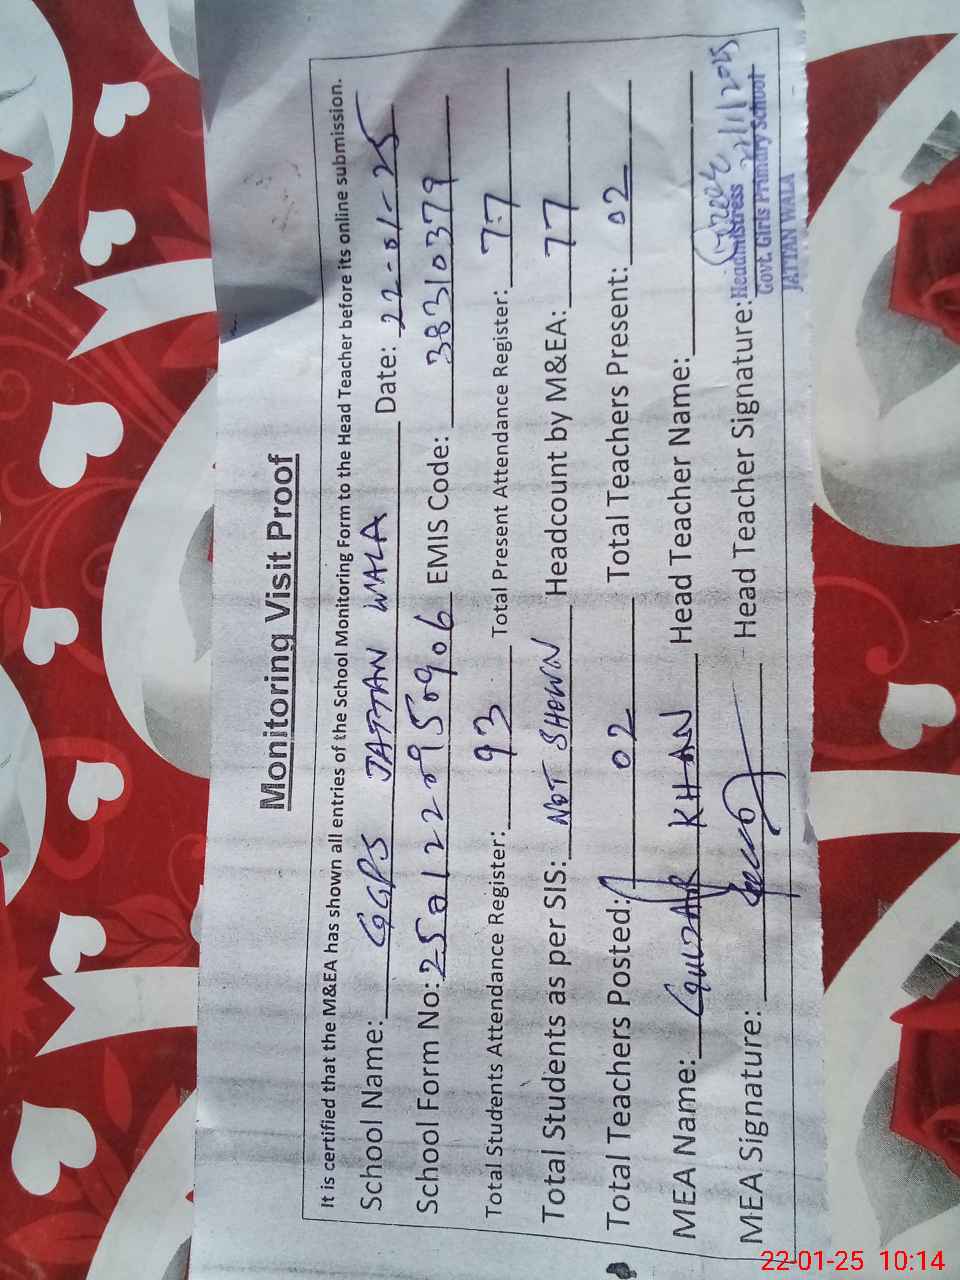 Monitoring Visit Proof
It is certified that the M&EA has shown all entries of the School Monitoring Form to the Head Teacher before its online submission.
School Name: GGPS JATTAN WALA Date: 22-01-25
School Form No: 250122095906 EMIS Code: 38310379
Total Students Attendance Register: 93 Total Present Attendance Register: 77
Total Students as per SIS: NOT SHOWN Headcount by M&EA: 77
Total Teachers Posted: 02 Total Teachers Present: 02
MEA Name: GULZAR KHAN Head Teacher Name:
MEA Signature: Head Teacher Signature:
22/1/2025
Headmistress
Govt. Girls Primary School
JATTAN WALA
22-01-25 10:14